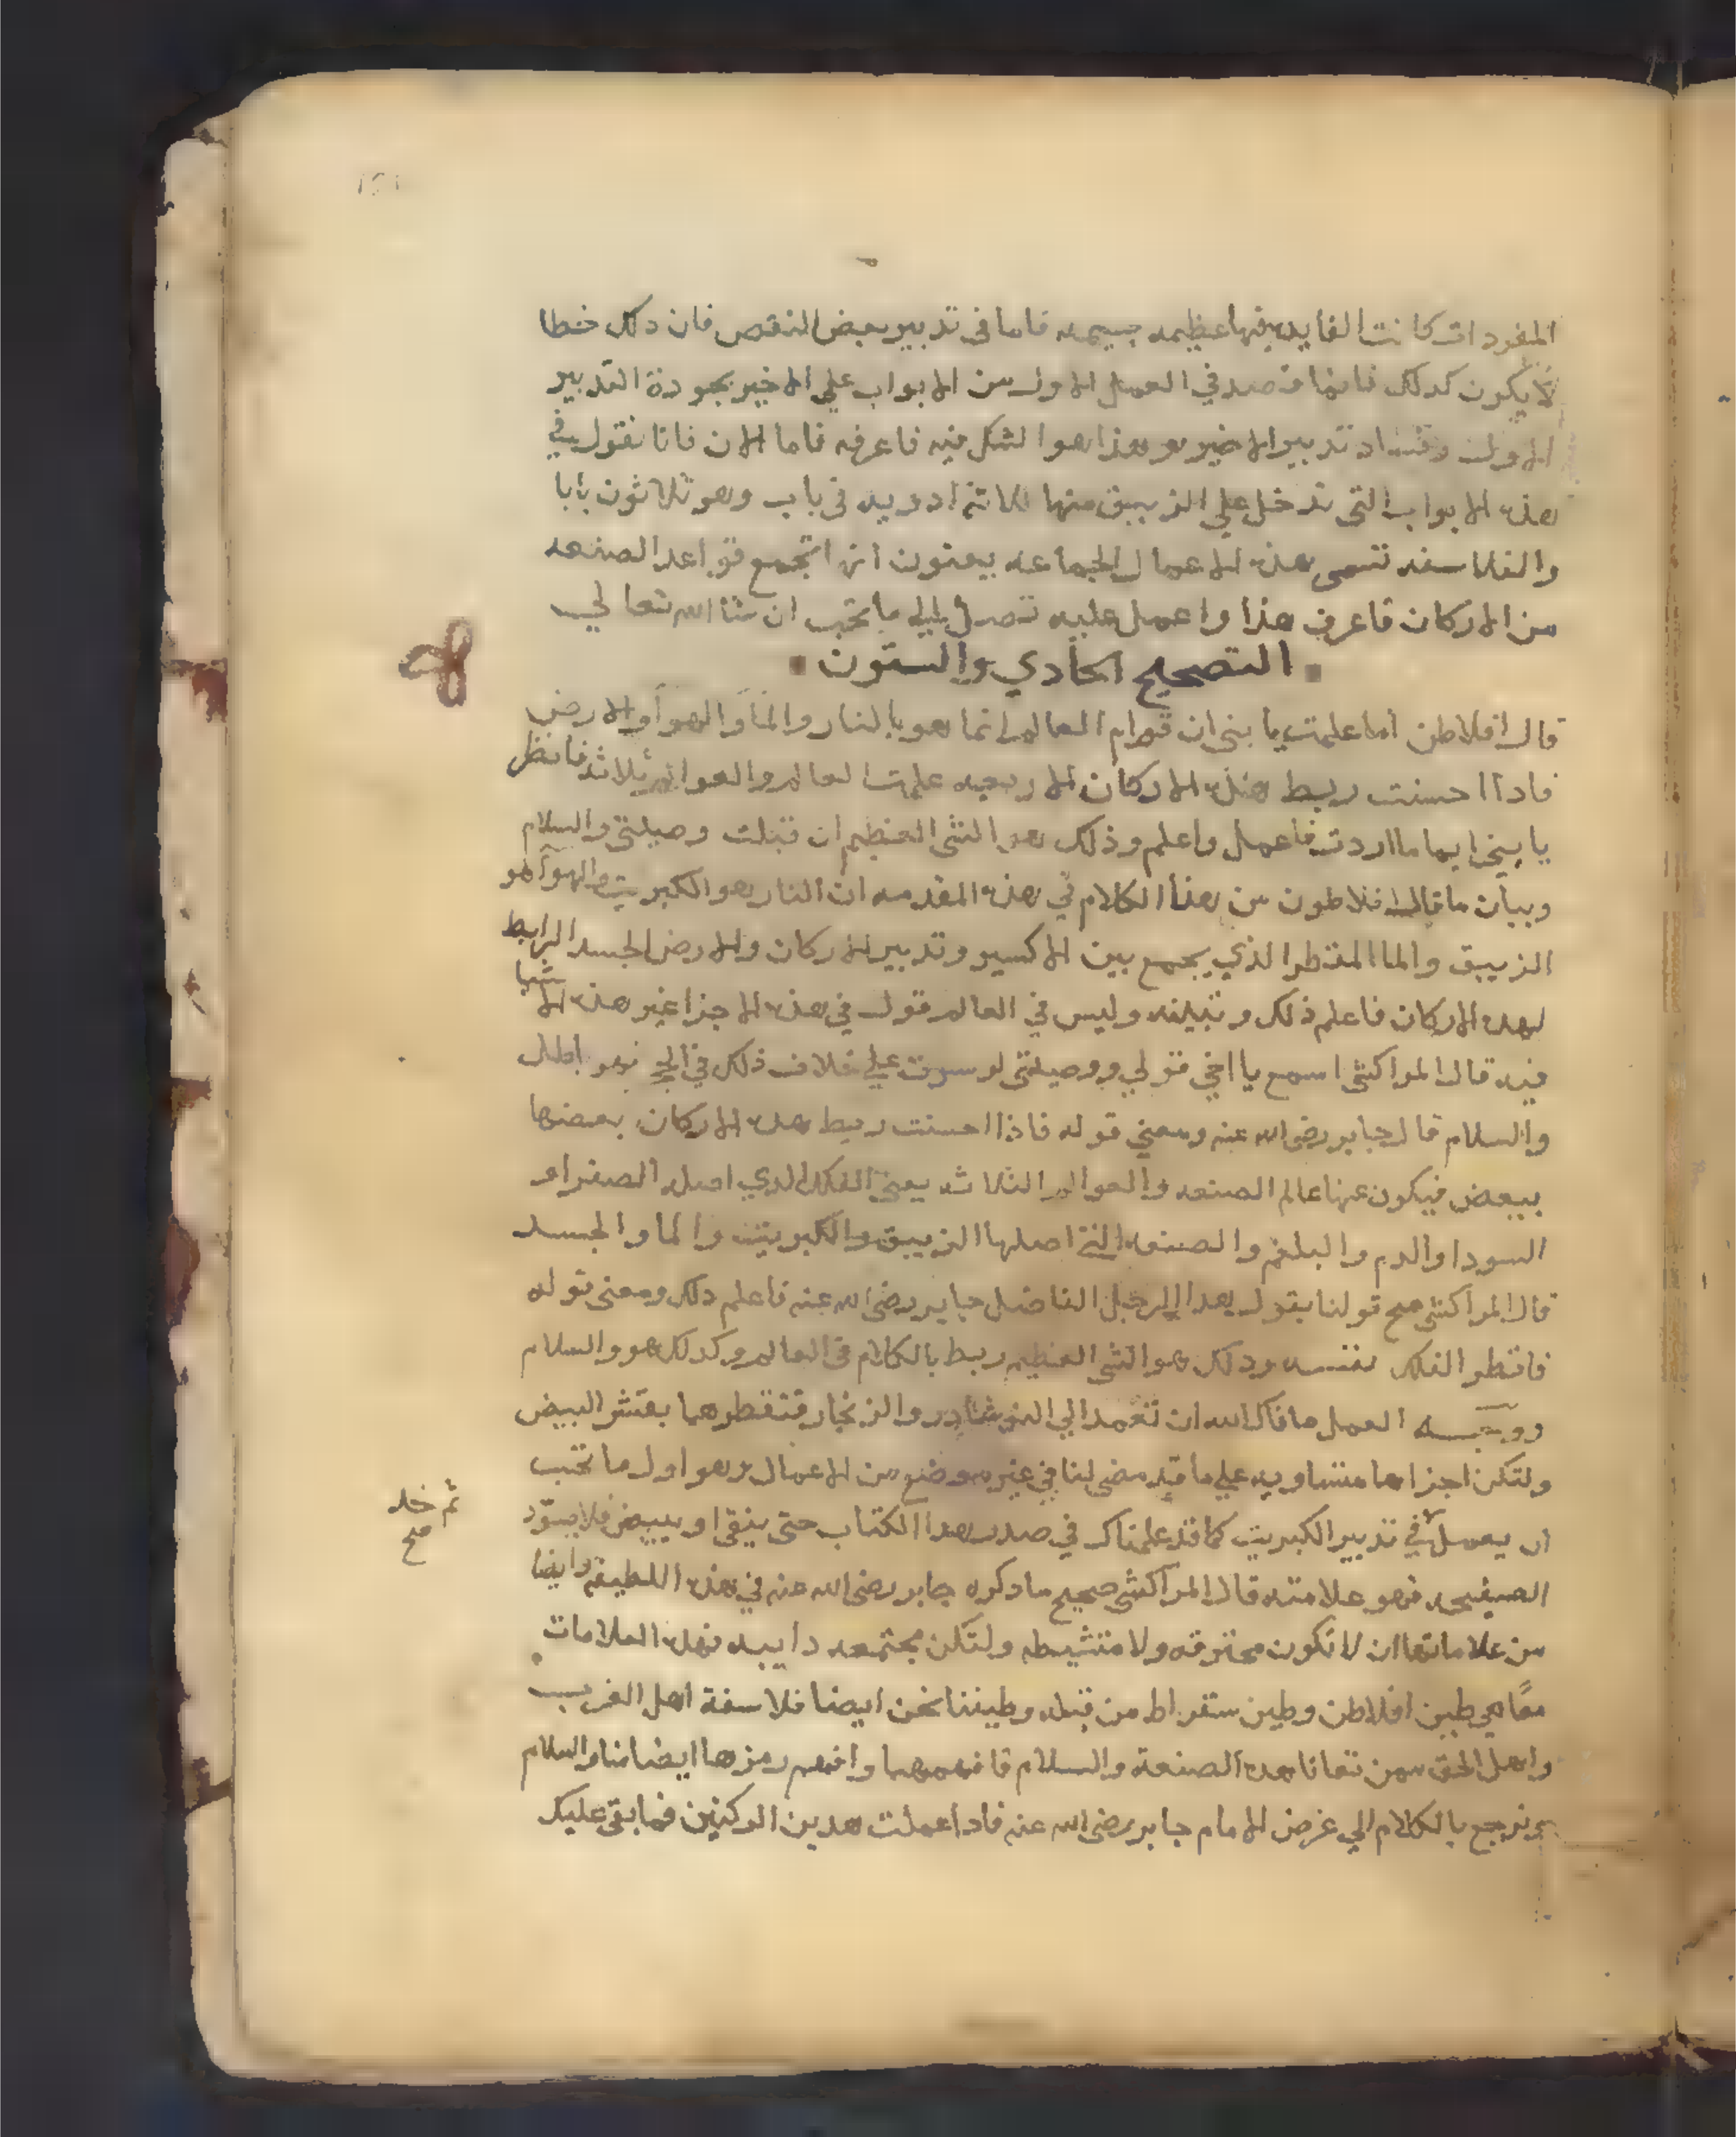 المفردات كانت الفايده فيها عظيمه جسيمه فاما في تدبير بعض النقص فان دلك خطا
لا يكون كدلك فانما قصد في العمل الاول من الابواب علي الاخير بجودة التدبير
الاول وفساد تدبير الاخير وهذا هو الشكل فيه فاعرفه فاما الان فانا نقول في
هذه الابواب التي تدخل علي الزيبق منها ثلاثة ادويه في باب وهو ثلاثون بابا
والفلاسفه تسمى هذه الاعمال الجماعه يعنون انها تجمع قواعد الصنعه
من الاركان فاعرف هذا واعمل عليه تصل اليه ما تحب ان شا الله تعالي
التصحيح الحادي والستون
قال افلاطن اما علمت يا بني ان قوام العالم انما هو بالنار والماَ والهوآَ والارض
فادا احسنت ربط هذه الاركان الاربعه علمت العالم والعوالم الثلاثه فانظر
يا بني ايما ما اردت فاعمل واعلم وذلك هو الشي العظيم ان قبلت وصيتي والسلام
وبيان ما قال افلاطون من هذا الكلام في هذه المقدمه ان النار هو الكبريت والهوآ هو
الزيبق والما المقطر الذي يجمع بين الاكسير وتدبير الاركان والارض الجسد الرابط
لهده الاركان فاعلم ذلك وتبينه وليس في العالم قول في هذه الاجزا غير هذه الاشيا
فيه قال المراكشي اسمع يا اخي قولي ووصيتي لو سرت علي خلاف ذلك في فهو باطل
والسلام قال جابر رضي الله عنه ومعني قوله فاذا احسنت ربط هده الاركان بعضها
ببعض فيكون عنها عالم الصنعه والعوالم الثلاثه يعني الفلك الدي اصله الصفرا و
السودا والدم والبلغم والصنعه التي اصلها الزيبق والكبريت والما والجسد
قال المراكشي صح قولنا بقول هدا الرجل الفاضل جابر رضي الله عنه فاعلم دلك ومعنى قوله
فانظر الفلك نفسه ودلك هو الشي العظيم ربط بالكلام في العالم وكدلك هو والسلام
ووجه العمل عافاك الله ان تعمد الي النوشادر والزنجار فتقطرهما بقشر البيض
ولتكن اجزاها متساويه علي ما قد مضي لنا في غير موضع من الاعمال وهو اول ما تحب
ان يعمل في تدبير الكبريت كما قد علمناك في صدر هدا الكتاب حتى ينقى او يبيض فلا يسوّد
الصفيحه فهو علامته قال المراكشي صحيح ما دكره جابر رضي الله عنه في هذه اللطيفه وايضا
من علاماتها ان لا تكون محترقه ولا متشيطه ولتكن مجتمعه دايبه فهده العلامات
معًا هي طين افلاطن وطين سقراط من قبله وطيننا نحن ايضا فلاسفة اهل الغرب
واهل الحق ممن تعانا هده الصنعة والسلام فافهمهما وافهم رمزها ايضا منا والسلام
ونرجع بالكلام الي غرض الامام جابر رضي الله عنه فادا عملت هدين الركنين فما بقى عليك
ثم خد
صح